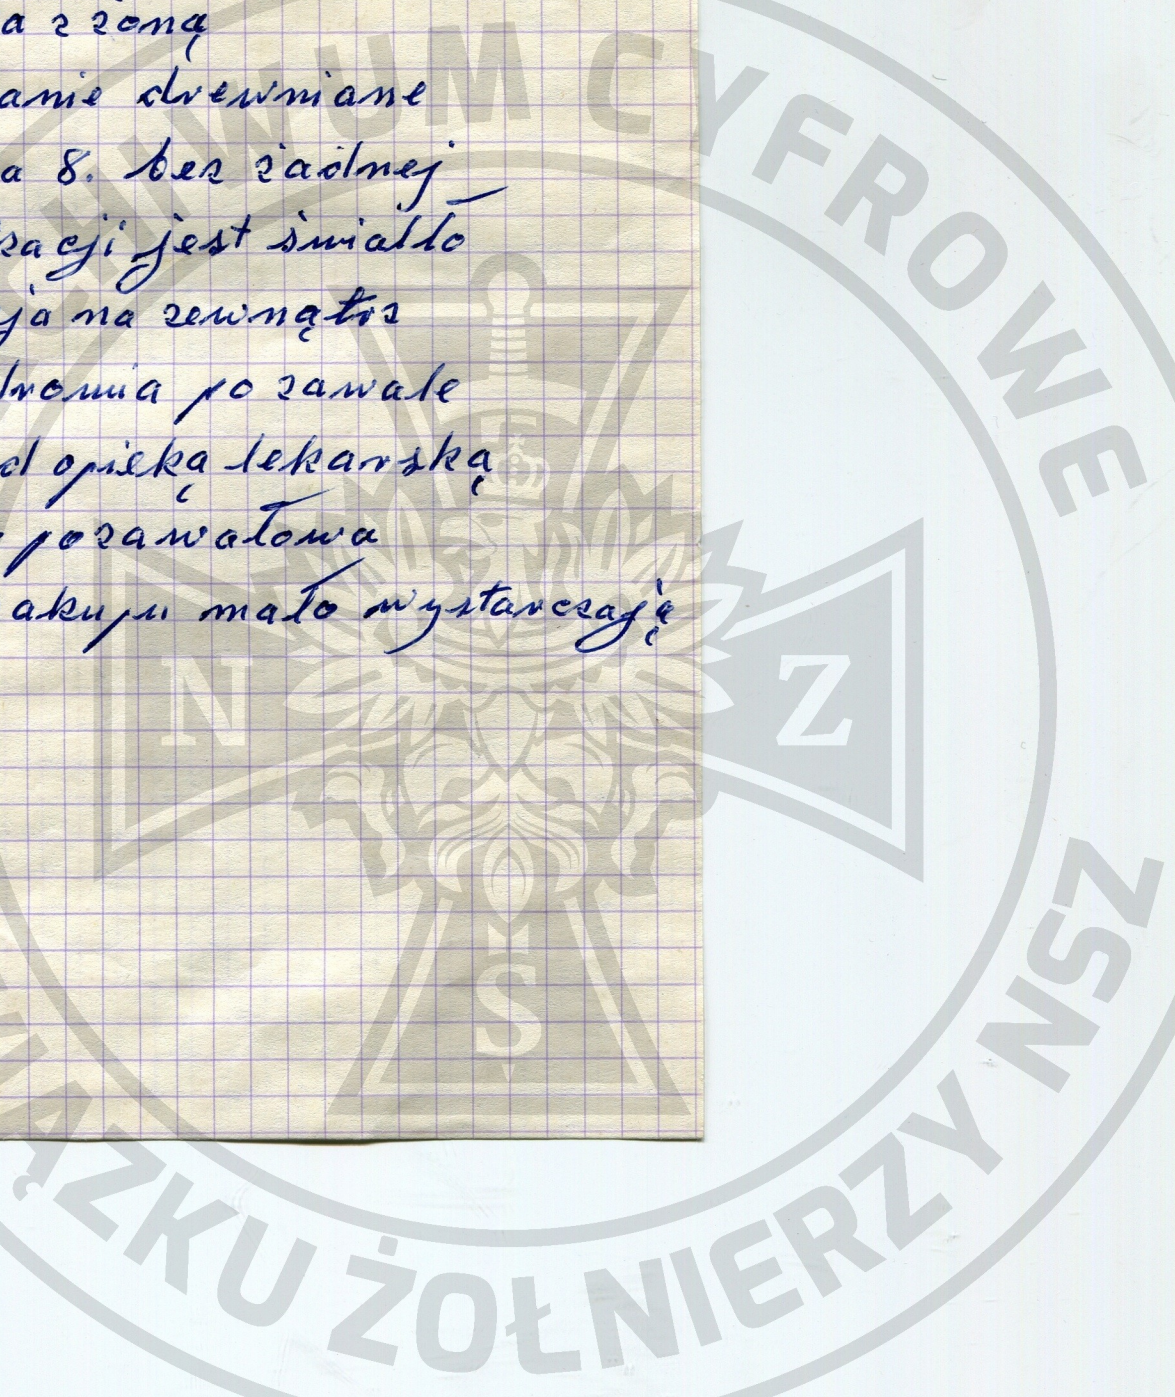 a z żoną
anie drewniane
a 8. bez żadnej
zacji jest światło
ja na zewnątrz
drowia po zawale
d opieką lekarską
pozawałowa
akupu mało wystarczają
CHIWUM CYFROWE
ĄZKU ŻOŁNIERZY NSZ
N Z
S